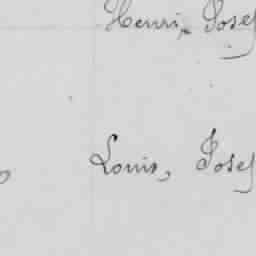 Henri, Josef
Louis, Josef